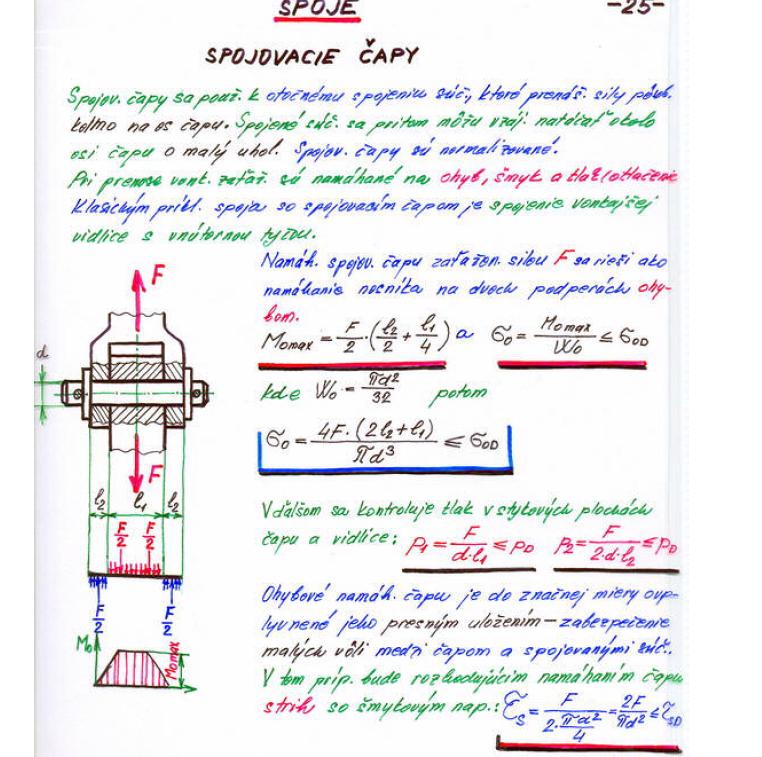 SPOJE -25-
SPOJOVACIE ČAPY
Spojov. čapy sa použ. k otočnému spojeniu súč., ktoré prenáš. sily pôsob.
kolmo na os čapu. Spojené súč. sa pritom môžu vzáj. natáčať okolo
osi čapu o malý uhol. Spojov. čapy sú normalizované.
Pri prenose vonk. zaťaž. sú namáhané na ohyb, šmyk a tlak (otlačenie
Klasickým príkl. spoja so spojovacím čapom je spojenie vonkajšej
vidlice s vnútornou tyčou.
Namáh. spojov. čapu zaťažen. silou F sa rieši ako
namáhanie nosníka na dvoch podperách ohy-
bom.
Momax = F/2 · (l2/2 + l1/4) a σo = Momax/Wo ≤ σoD
kde Wo = πd²/32 potom
σo = 4F·(2l2+l1)/πd³ ≤ σoD
V ďalšom sa kontroluje tlak v stykových plochách
čapu a vidlice: p1 = F/d·l1 ≤ pD p2 = F/2·d·l2 ≤ pD
Ohybové namáh. čapu je do značnej miery ovp-
lyvnené jeho presným uložením – zabezpečenie
malých vôlí medzi čapom a spojovanými súč..
V tom príp. bude rozhodujúcim namáhaním čapu
strih so šmykovým nap.: τs = F/2·πd²/4 = 2F/πd² ≤ τsD
F
d
F
l2 l1 l2
F/2 F/2
F/2 F/2
Mo
Momax